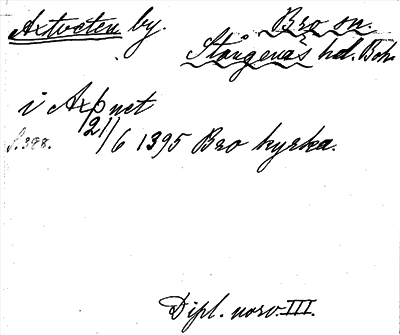 Axtveten by. Bro sn.
Stångenäs hd. Boh.
i Axþuet
s. 388. 21/6 1395 Bro kyrka.
Dipl. norv. III.